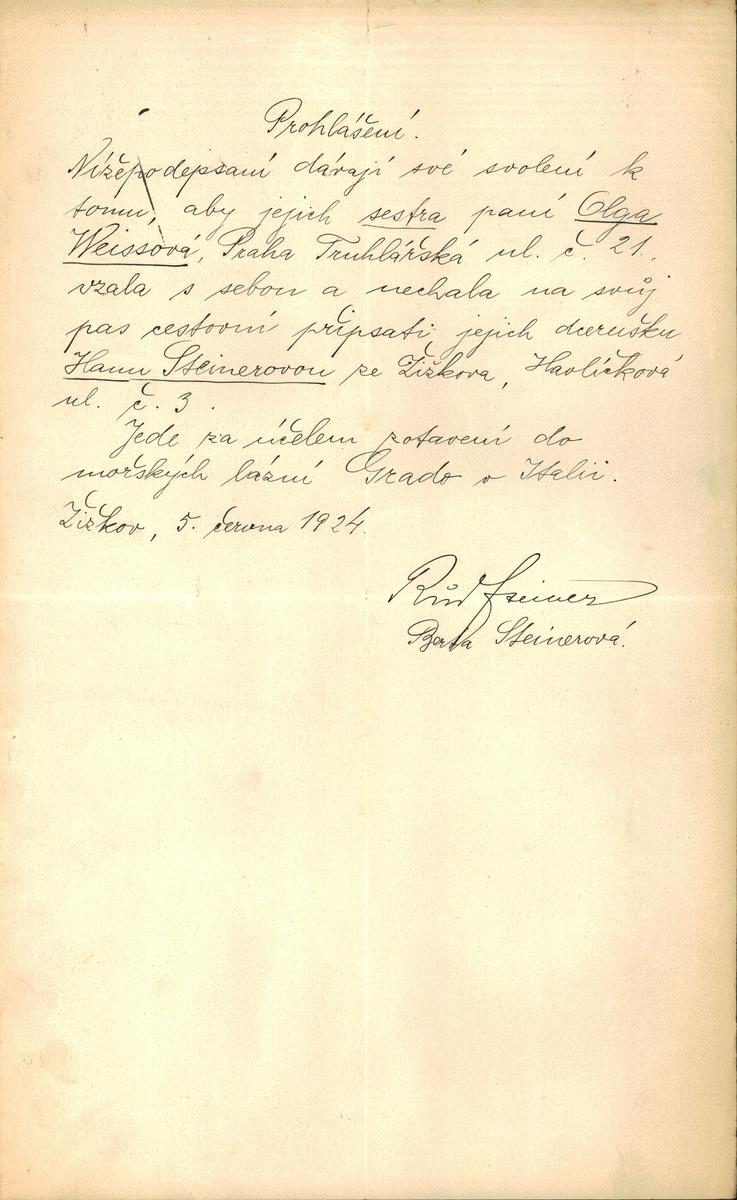 Prohlášení.
Nížepodepsaní dávají své svolení k
tomu, aby jejich sestra paní Olga
Weissová, Praha Truhlářská ul. č. 21.,
vzala s sebou a nechala na svůj
pas cestovní připsati jejich dcerušku
Hanu Steinerovou ze Žižkova, Havlíčková
ul. č. 3.
Jede za účelem zotavení do
mořských lázní Grado v Italii.
Žižkov, 5. června 1924.
Rud Steiner
Berta Steinerová.